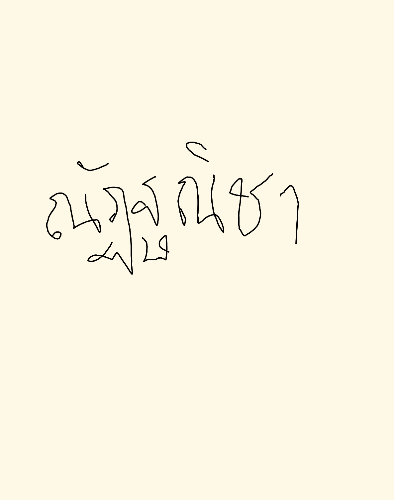 ณัฏฐณิชา